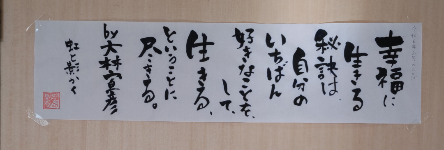 幸福に
生きる
秘訣は、
自分の
いちばん
好きなことを、
して、
生きる、
ということに
尽きる。
by大林宣彦